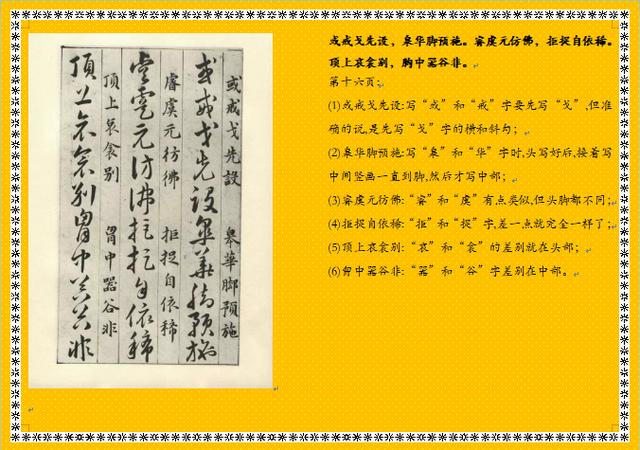 或戒戈先設 皋華脚預施
或戒戈先設皋華脚預施
睿虞元彷彿 拒捉自依稀
睿虞元彷彿拒捉自依稀
頂上哀衾别 胷中器谷非
頂上哀衾别胷中器谷非
或戒戈先设，皋华脚预施。睿虞元仿佛，拒捉自依稀。
顶上哀衾别，胸中器谷非。
第十六页:
(1)或戒戈先设:写“或”和“戒”字要先写“戈”,但准
确的说,是先写“戈”字的横和斜勾；
(2)皋华脚预施:写“皋”和“华”字时,头写好后,接着写
中间竖画一直到脚,然后才写中部；
(3)睿虞元仿佛:“睿”和“虞”有点类似,但头脚都不同；
(4)拒捉自依稀:“拒”和“捉”字,差一点就完全一样了；
(5)顶上哀衾别:“哀”和“衾”的差别就在头部；
(6)胷中器谷非:“器”和“谷”字差别在中部。